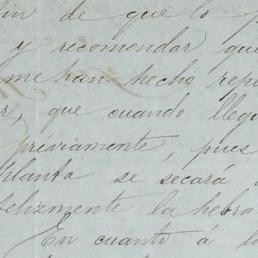 fin de que lo
y recomendar que
me han hecho rep
r, que cuando lleg
préviamente, pues
planta se secara
felizmente la hebra
En cuanto á la